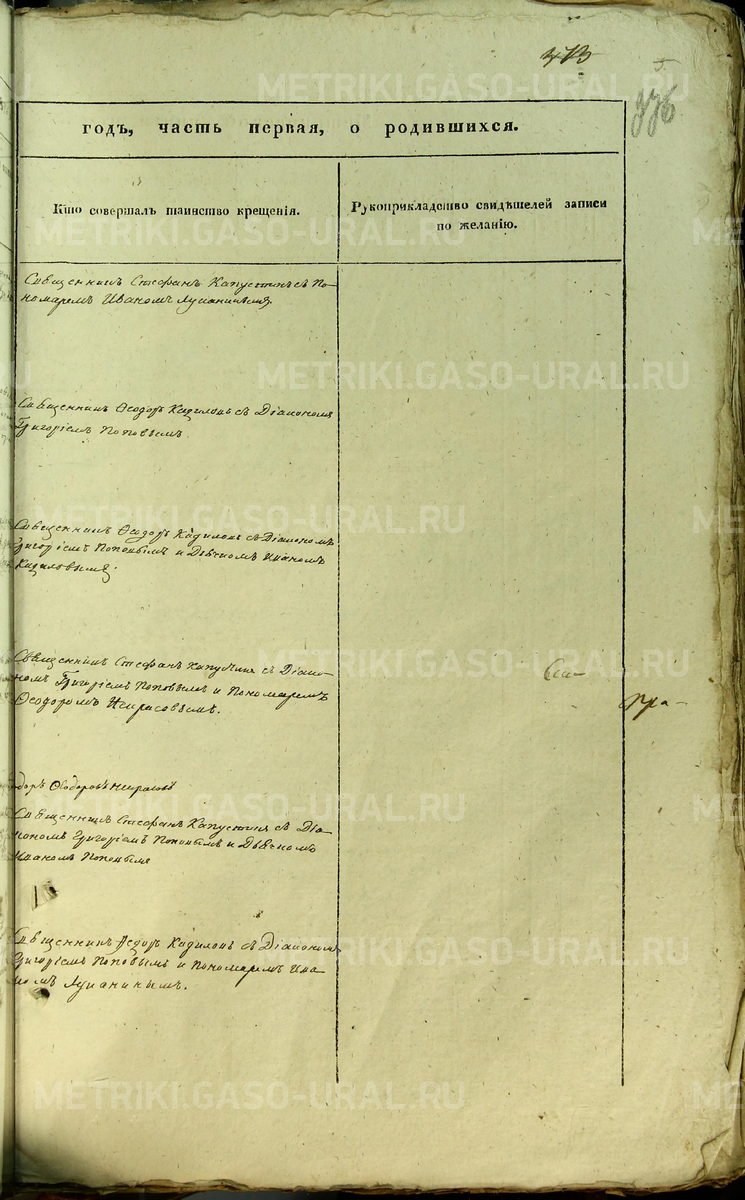 METRIKI.GASO-URAL.RU
годъ, часть первая, о родившихся.
Кто совершалъ таинство крещенія.
Рукоприкладство свидѣтелей записи
по желанію.
Священникъ Стефанъ Капустинъ съ По-
номаремъ Иваномъ
Священникъ Ѳеодоръ Кадиловъ съ Діакономъ
Григоріемъ Поповымъ.
Священникъ Ѳеодоръ Кадиловъ съ Діакономъ
Григоріемъ Поповымъ и Дьячкомъ Иваномъ
Кадиловымъ.
Священникъ Стефанъ Капустинъ съ Діако-
номъ Григоріемъ Поповымъ и Пономаремъ
Ѳеодоромъ
Священникъ Стефанъ Капустинъ съ Діа-
кономъ Григоріемъ Поповымъ и Дьячкомъ
Иваномъ Поповымъ
Священникъ Ѳедоръ Кадиловъ съ Діакономъ
Григоріемъ Поповымъ и Пономаремъ Ива-
номъ
Свя-
пра-